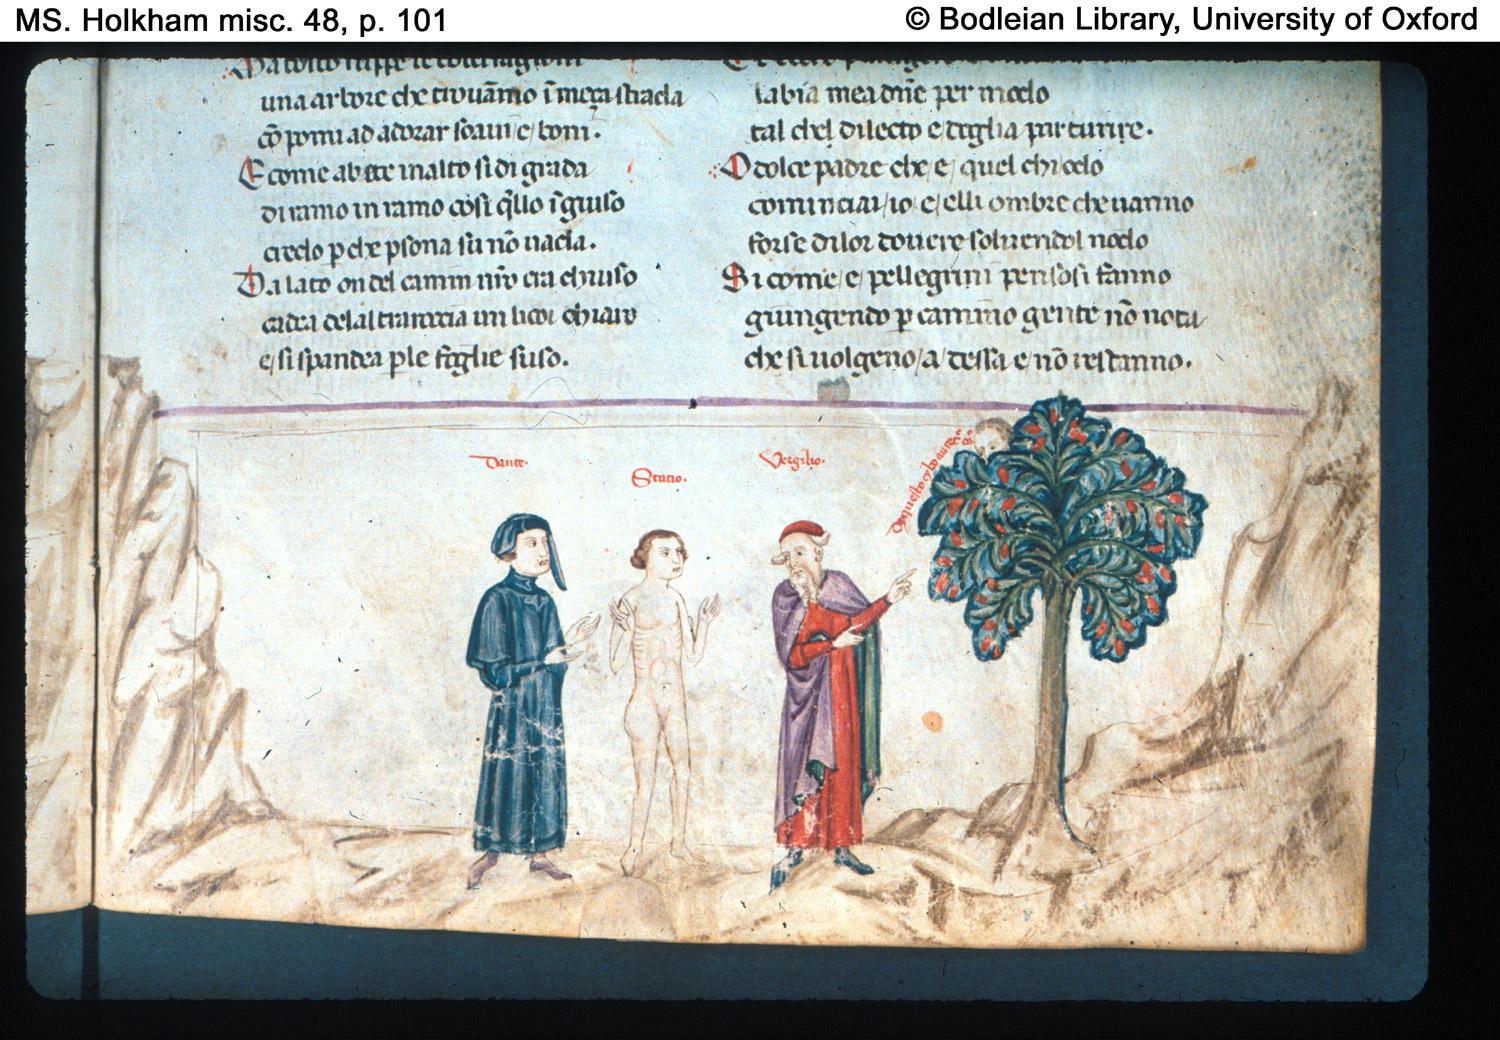 MS. Holkham misc. 48, p. 101
© Bodleian Library, University of Oxford
Ma tosto ruppe le dolci ragioni
una arbore che trouãmo ĩ meza strada
cõ pomi ad adorar soaui e boni.
E come abete in alto si di grada
di ramo in ramo cosi q̃llo ĩ giuso
credo p che psona su nõ uada.
Da lato on del camin nr̃o era chiuso
cadea de lalta roccia un licor chiaro
e si spandea p le foglie suso.
labia mea dñe per modo
tal chel dilecto e doglia parturire.
O dolce padre che e quel chi odo
cominciai io e elli ombre che uanno
forse di lor douere soluendol nodo
Si come e pellegrini pensosi fanno
giungendo p camino gente nõ nota
che si uolgeno a dessa e nõ restanno.
Dante.
Statio.
Vergilio.
De questo cibo aurete